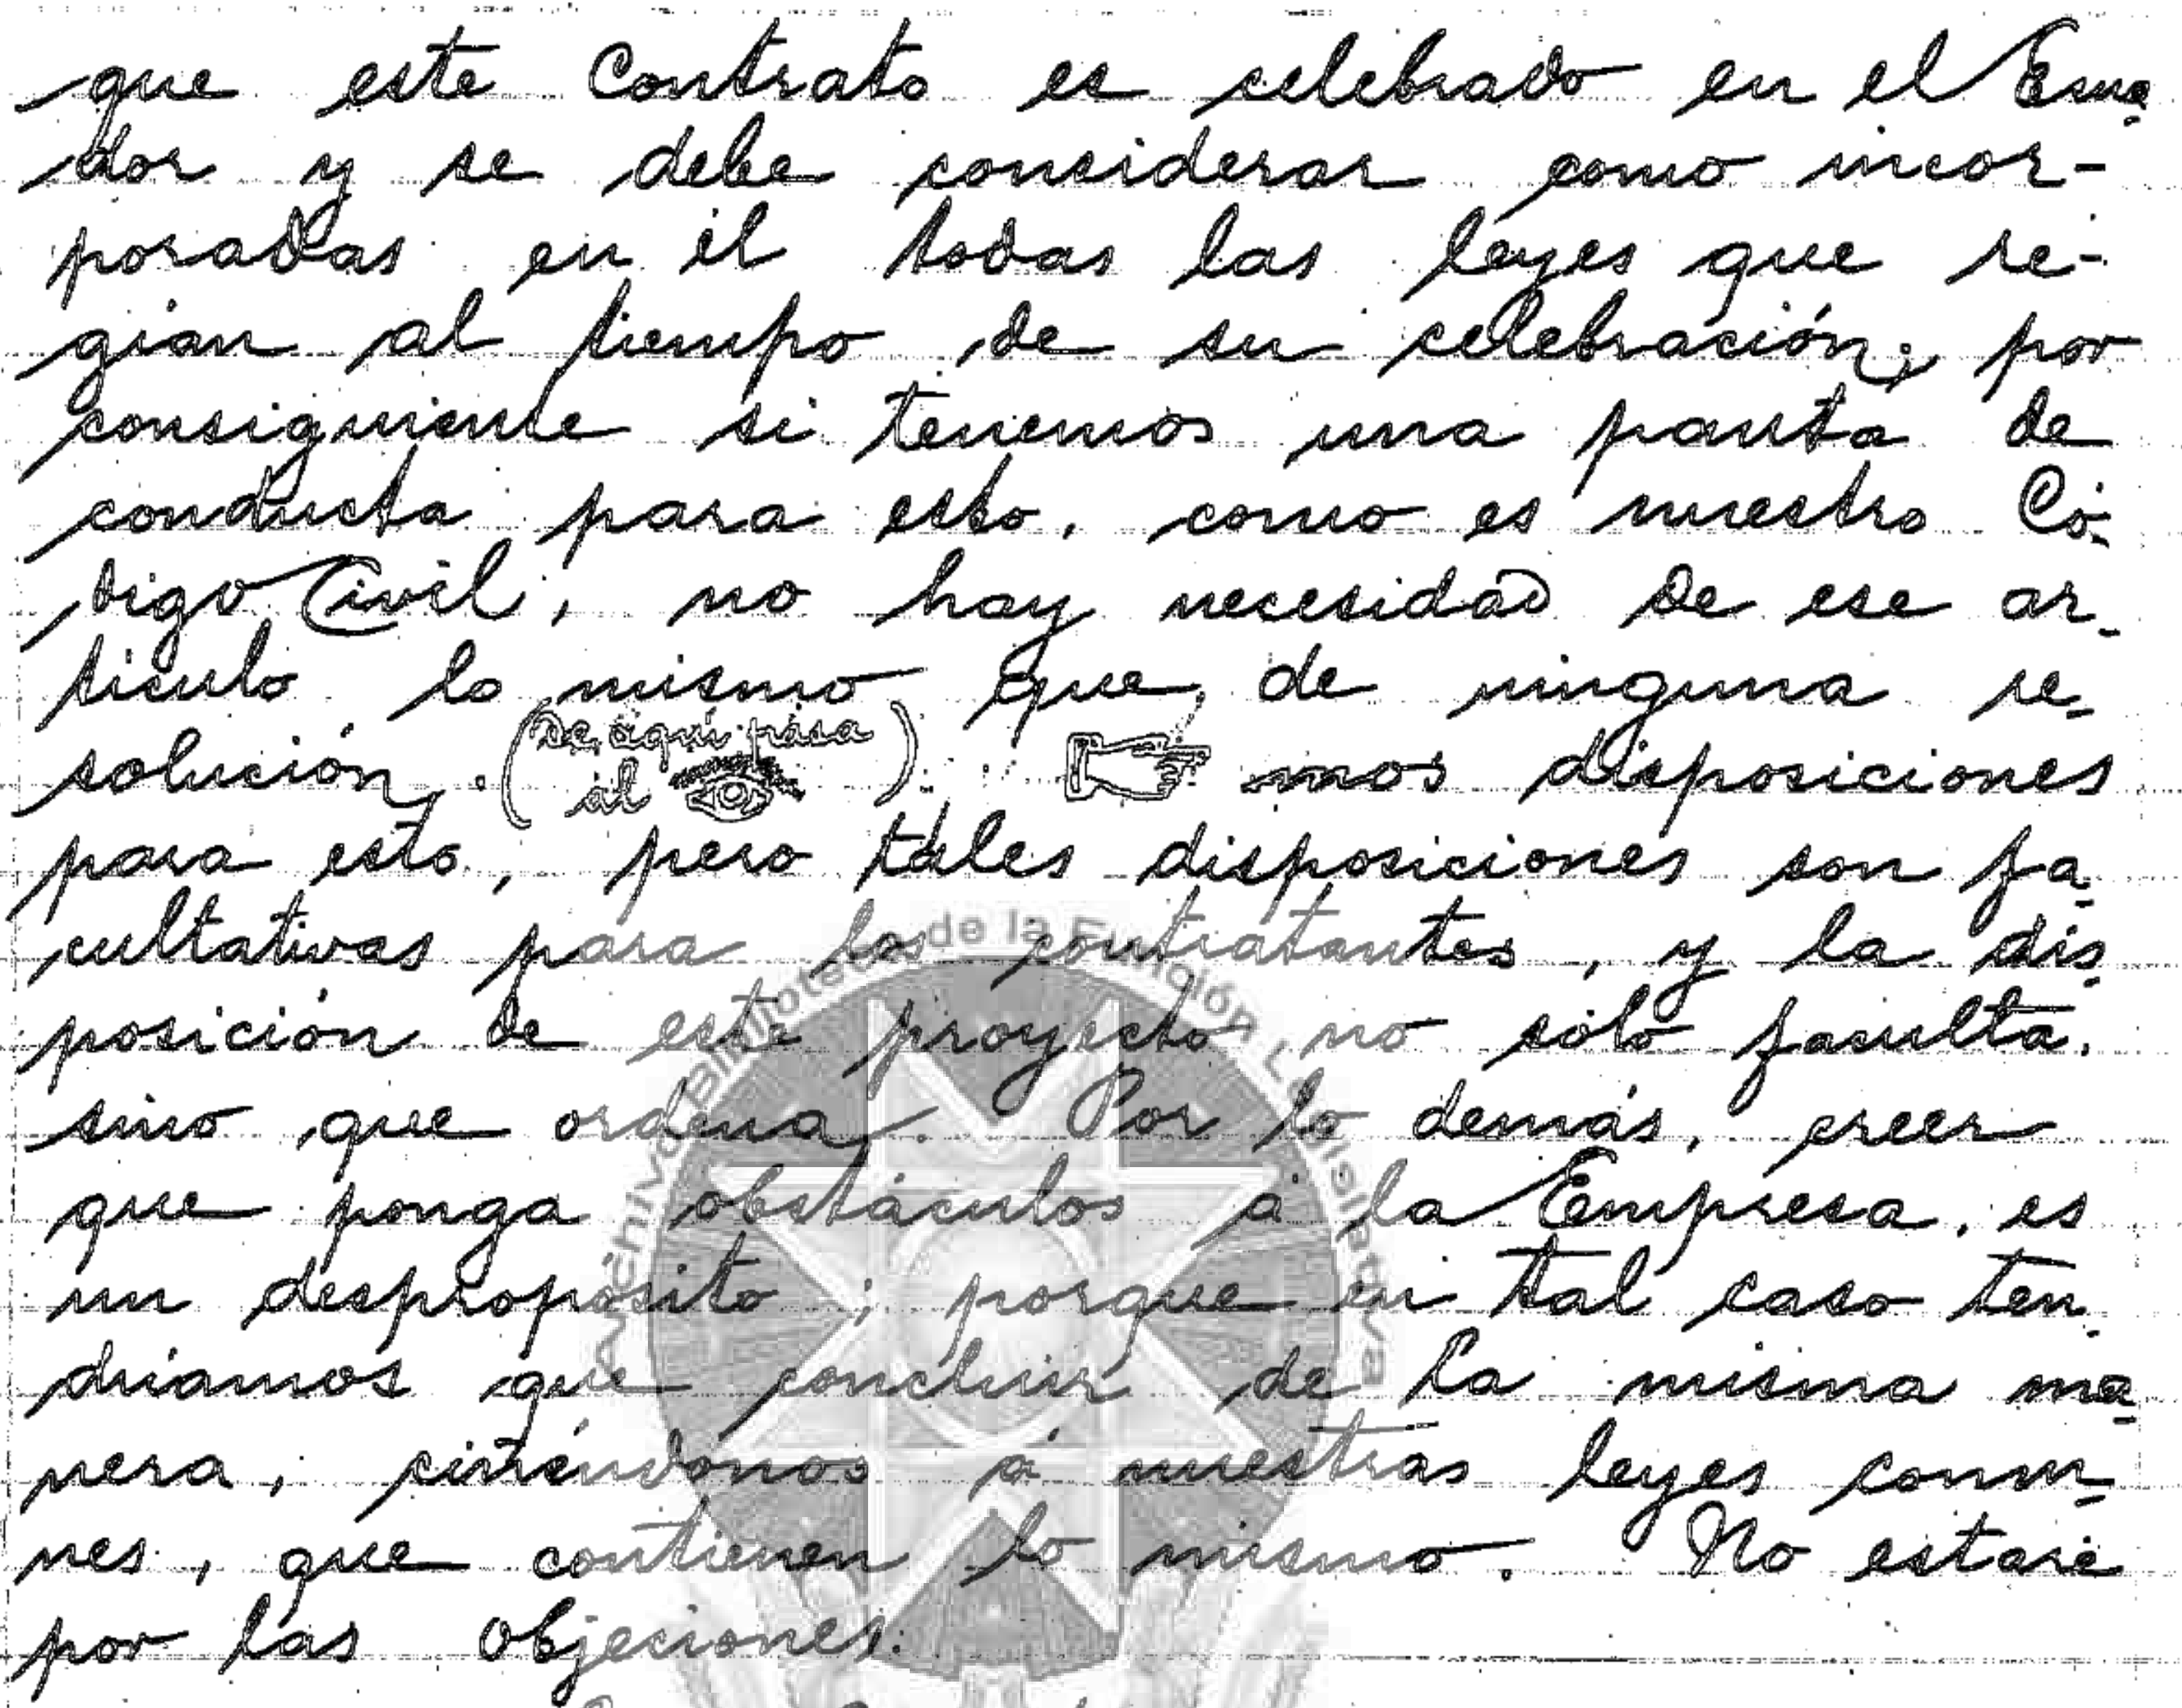 que este Contrato es celebrado en el Ecua-
dor y se debe considerar como incor-
poradas en él todas las leyes que re-
gian al tiempo de su celebración; por
consiguiente si tenemos una pauta de
conducta para esto, como es nuestro Có-
digo Civil, no hay necesidad de ese ar-
tículo lo mismo que de ninguna re-
solución. (De aquí pasa al) mos disposiciones
para esto, pero tales disposiciones son fa-
cultativas para los contratantes, y la dis-
posición de este proyecto no sólo faculta.
sino que ordena. Por lo demás, creer
que ponga obstáculos á la Empresa, es
un despropósito; porque en tal caso ten-
driamos que concluir de la misma ma-
nera, ciñéndonos á nuestras leyes comu-
nes, que contienen lo mismo. No estaré
por las objeciones.
Archivo Biblioteca de la Función Legislativa